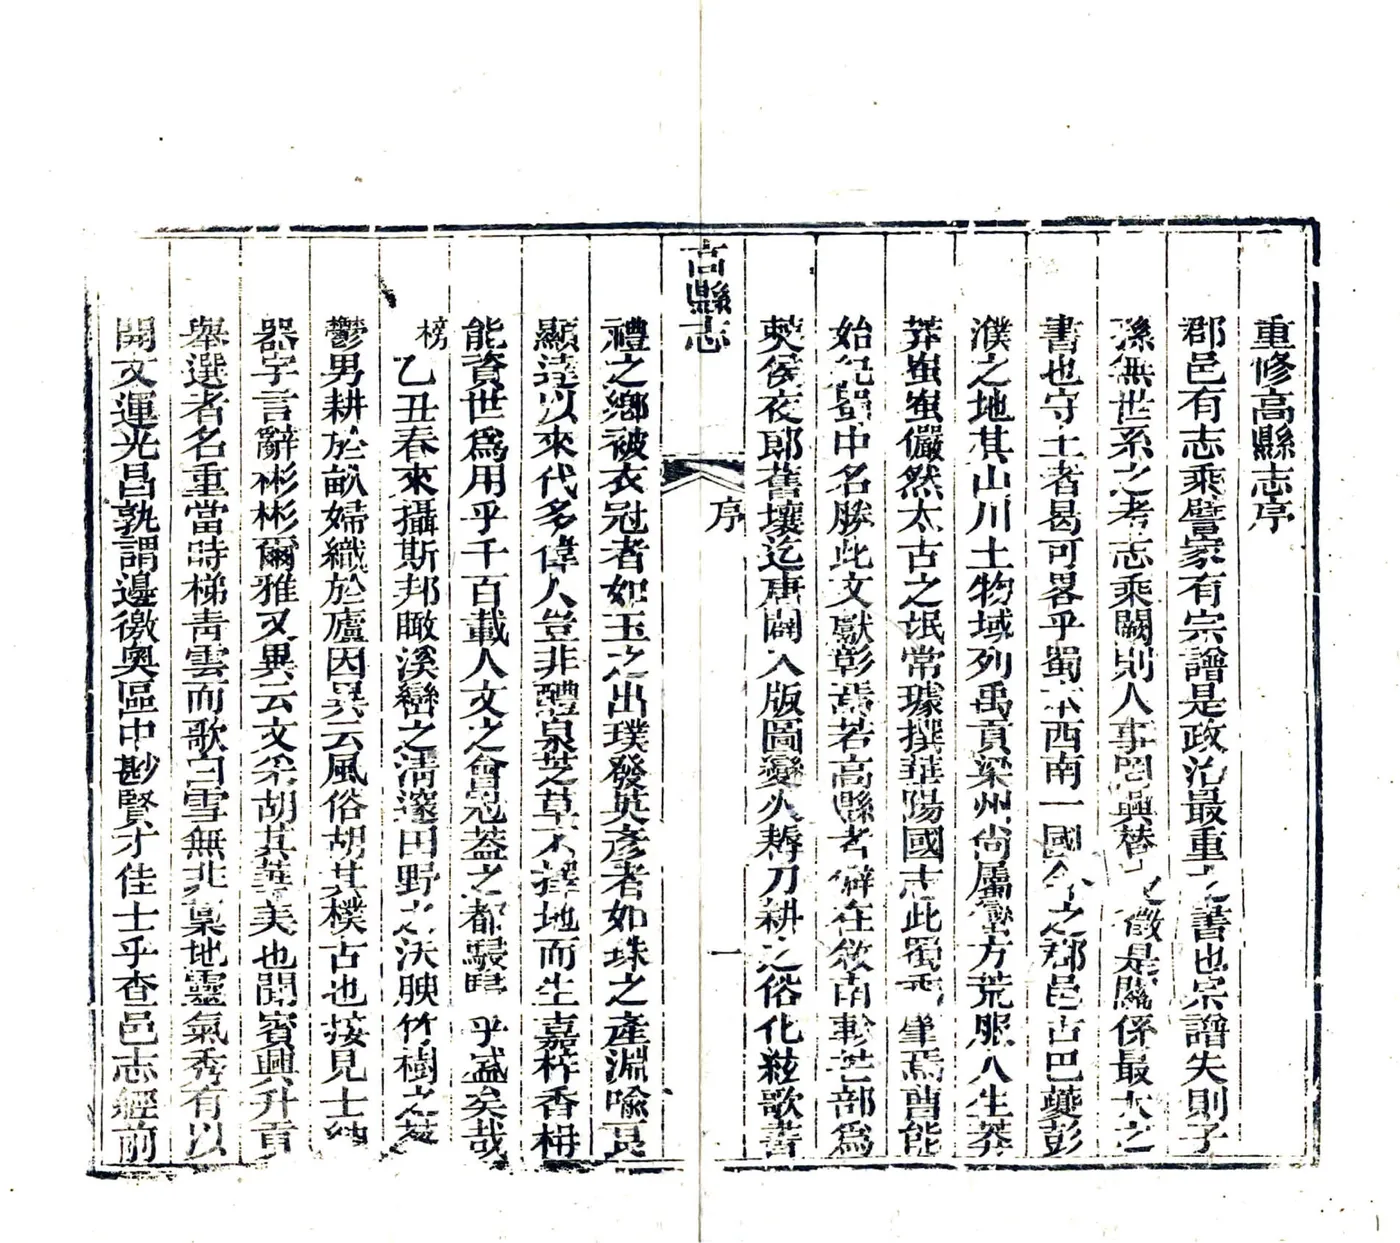 重修高縣志序
郡邑有志乘譬家有宗譜是政治最重之書也宗譜失則子
孫無世系之考志乘闕則人事罔興替之徵是關係最大之
書也守土者曷可畧乎蜀本西南一國今之郡邑古巴夔彭
濮之地其山川土物域列禹貢梁州尚屬蠻方荒服人生莽
莽蚩蚩儼然太古之氓常璩撰華陽國志此蜀乘肇焉曹能
始記蜀中名勝此文獻彰焉若高縣者僻在敘南軫芒部為
僰侯夜郎舊壤迄唐闢入版圖變火耨刀耕之俗化絃歌書
高縣志
序
一
禮之鄉被衣冠者如玉之出璞發英彥者如珠之產淵喻良
顯達以來代多偉人豈非醴泉芝草不擇地而生嘉梓香枏
能資世為用乎千百載人文之會冠蓋之都駸駸乎盛矣哉
榜乙丑春來攝斯邦瞰溪巒之清邃田野之決腴竹樹之蓊
鬱男耕於畝婦織於廬因異云風俗胡其樸古也接見士紳
器宇言辭彬彬爾雅又異云文采胡其華美也聞賓興升貢
舉選者名重當時梯青雲而歌白雪無非稟地靈氣秀有以
開文運光昌孰謂邊徼奧區中尠賢才佳士乎查邑志經前